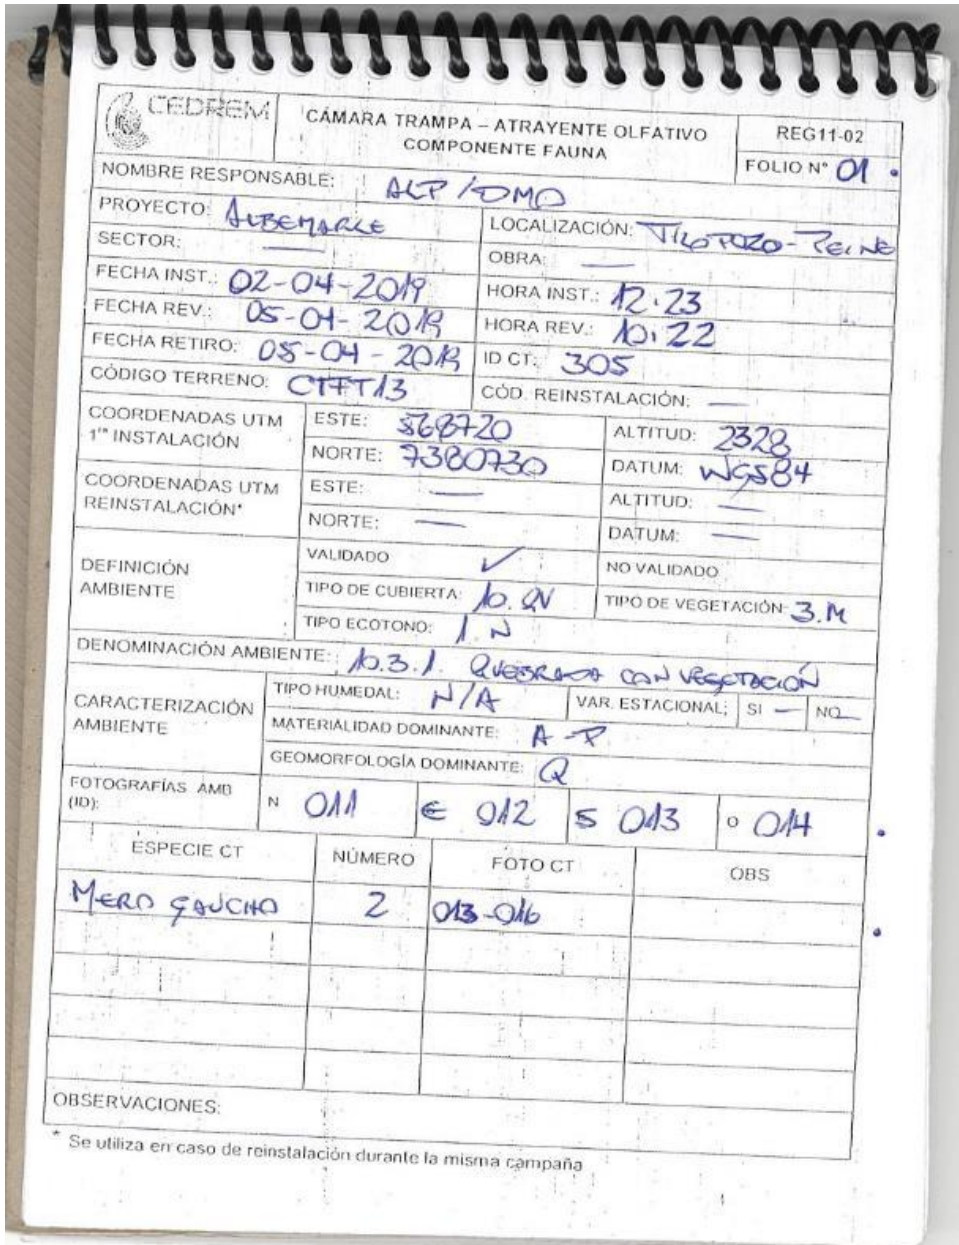 CEDREM
CÁMARA TRAMPA – ATRAYENTE OLFATIVO
COMPONENTE FAUNA
REG11-02
FOLIO N° 01
NOMBRE RESPONSABLE: ALP / DMO
PROYECTO: ALBEMARLE
LOCALIZACIÓN: TILOPOZO - PEINE
SECTOR: —
OBRA: —
FECHA INST.: 02-04-2019
HORA INST.: 12:23
FECHA REV.: 05-04-2019
HORA REV.: 10:22
FECHA RETIRO: 05-04-2019
ID CT: 305
CÓDIGO TERRENO: CTFT13
CÓD. REINSTALACIÓN: —
COORDENADAS UTM
1ra INSTALACIÓN
ESTE: 568720
ALTITUD: 2328
NORTE: 7380730
DATUM: WGS84
COORDENADAS UTM
REINSTALACIÓN*
ESTE: —
ALTITUD: —
NORTE: —
DATUM: —
DEFINICIÓN
AMBIENTE
VALIDADO ✓
NO VALIDADO
TIPO DE CUBIERTA: 10. QV
TIPO DE VEGETACIÓN: 3. M
TIPO ECOTONO: 1. N
DENOMINACIÓN AMBIENTE: 10.3.1. QUEBRADA CON VEGETACIÓN
CARACTERIZACIÓN
AMBIENTE
TIPO HUMEDAL: N/A
VAR. ESTACIONAL: SI — NO —
MATERIALIDAD DOMINANTE: A - P
GEOMORFOLOGÍA DOMINANTE: Q
FOTOGRAFÍAS AMB
(ID):
N 011 E 012 S 013 O 014
ESPECIE CT NÚMERO FOTO CT OBS
MERO GAUCHO 2 013-016
OBSERVACIONES:
* Se utiliza en caso de reinstalación durante la misma campaña